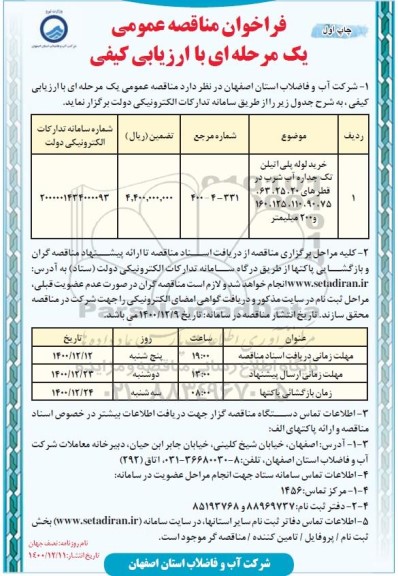 چاپ اول
فراخوان مناقصه عمومی
یک مرحله ای با ارزیابی کیفی
شرکت آب و فاضلاب استان اصفهان
۱- شرکت آب و فاضلاب استان اصفهان در نظر دارد مناقصه عمومی یک مرحله ای با ارزیابی
کیفی، به شرح جدول زیر را از طریق سامانه تدارکات الکترونیکی دولت برگزار نماید.
ردیف موضوع شماره مرجع تضمین (ریال) شماره سامانه تدارکات
الکترونیکی دولت
۱ خرید لوله پلی اتیلن
تک جداره آب شرب در
قطرهای ۲۰، ۲۵، ۶۳،
۷۵، ۹۰، ۱۱۰، ۱۲۵، ۱۶۰
و ۲۰۰ میلیمتر
۴۰۰-۴-۳۳۱ ۴,۴۰۰,۰۰۰,۰۰۰ ۲۰۰۰۰۰۱۴۳۴۰۰۰۰۹۳
۲- کلیه مراحل برگزاری مناقصه از دریافت اسناد مناقصه تا ارائه پیشنهاد مناقصه گران
و بازگشایی پاکتها از طریق درگاه سامانه تدارکات الکترونیکی دولت (ستاد) به آدرس:
www.setadiran.ir انجام خواهد شد و لازم است مناقصه گران در صورت عدم عضویت قبلی،
مراحل ثبت نام در سایت مذکور و دریافت گواهی امضای الکترونیکی را جهت شرکت در مناقصه
محقق سازند. تاریخ انتشار مناقصه در سامانه: تاریخ ۱۴۰۰/۱۲/۹ می باشد.
عنوان ساعت روز تاریخ
مهلت زمانی دریافت اسناد مناقصه ۱۹:۰۰ پنج شنبه ۱۴۰۰/۱۲/۱۲
مهلت زمانی ارسال پیشنهاد ۱۳:۰۰ دوشنبه ۱۴۰۰/۱۲/۲۳
زمان بازگشائی پاکتها ۰۸:۰۰ سه شنبه ۱۴۰۰/۱۲/۲۴
۳- اطلاعات تماس دستگاه مناقصه گزار جهت دریافت اطلاعات بیشتر در خصوص اسناد
مناقصه و ارائه پاکتهای الف:
۳-۱- آدرس: اصفهان، خیابان شیخ کلینی، خیابان جابر ابن حیان، دبیرخانه معاملات شرکت
آب و فاضلاب استان اصفهان، تلفن: ۸-۳۶۶۸۰۰۳۰-۰۳۱، اتاق (۲۹۲)
۴- اطلاعات تماس سامانه ستاد جهت انجام مراحل عضویت در سامانه:
۴-۱- مرکز تماس: ۱۴۵۶
۴-۲- دفتر ثبت نام: ۸۸۹۶۹۷۳۷ و ۸۵۱۹۳۷۶۸
۵- اطلاعات تماس دفاتر ثبت نام سایر استانها، در سایت سامانه (www.setadiran.ir) بخش
ثبت نام / پروفایل / تامین کننده / مناقصه گر موجود است.
نام روزنامه: نصف جهان
تاریخ انتشار: ۱۴۰۰/۱۲/۱۱
شرکت آب و فاضلاب استان اصفهان